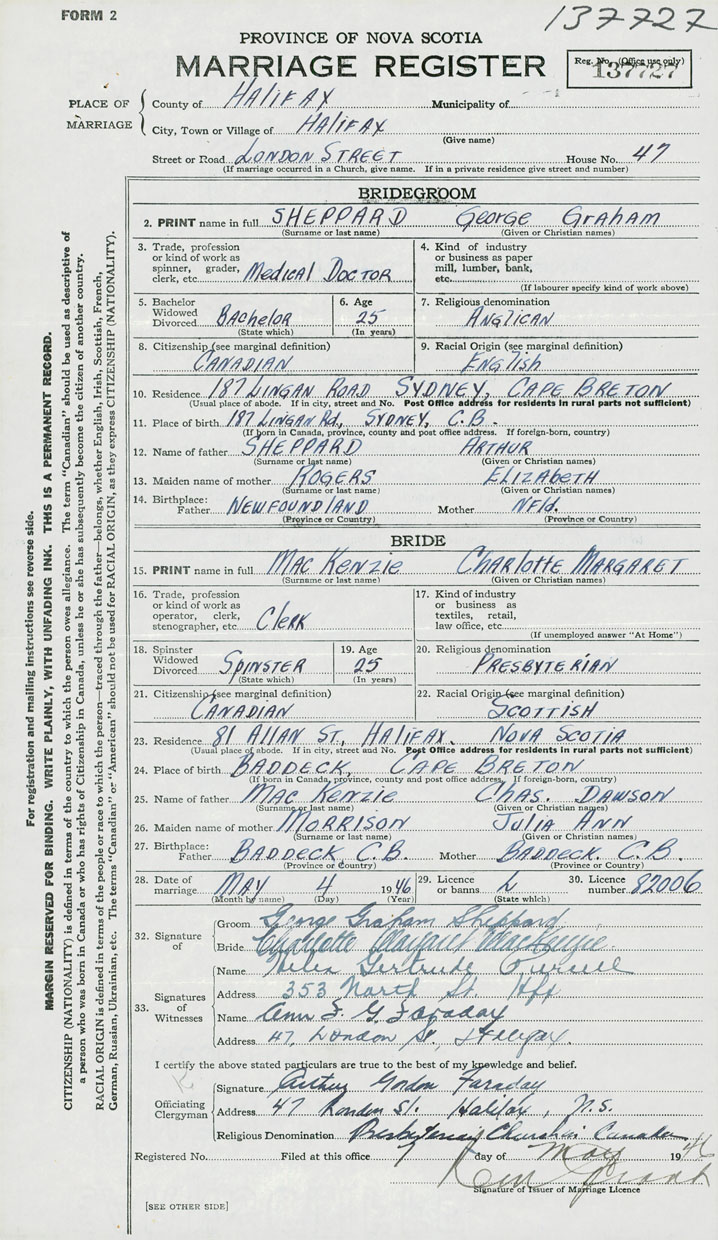 FORM 2
137727
PROVINCE OF NOVA SCOTIA
MARRIAGE REGISTER
Reg. No. (Office use only)
137727
PLACE OF MARRIAGE
County of HALIFAX Municipality of
City, Town or Village of HALIFAX
(Give name)
Street or Road LONDON STREET House No. 47
(If marriage occurred in a Church, give name. If in a private residence give street and number)
BRIDEGROOM
2. PRINT name in full SHEPPARD George Graham
(Surname or last name) (Given or Christian names)
3. Trade, profession or kind of work as spinner, grader, clerk, etc. Medical Doctor
4. Kind of industry or business as paper mill, lumber, bank, etc.
(If labourer specify kind of work above)
5. Bachelor Widowed Divorced Bachelor
(State which)
6. Age 25
(In years)
7. Religious denomination
Anglican
8. Citizenship (see marginal definition)
CANADIAN
9. Racial Origin (see marginal definition)
English
10. Residence 187 LINGAN ROAD SYDNEY, CAPE BRETON
(Usual place of abode. If in city, street and No. Post Office address for residents in rural parts not sufficient)
11. Place of birth 187 LINGAN Rd, SYDNEY, C.B.
(If born in Canada, province, county and post office address. If foreign-born, country)
12. Name of father SHEPPARD ARTHUR
(Surname or last name) (Given or Christian names)
13. Maiden name of mother ROGERS ELIZABETH
(Surname or last name) (Given or Christian names)
14. Birthplace: Father NEWFOUNDLAND Mother NFld.
(Province or Country) (Province or Country)
BRIDE
15. PRINT name in full Mac Kenzie Charlotte MARGARET
(Surname or last name) (Given or Christian names)
16. Trade, profession or kind of work as operator, clerk, stenographer, etc. Clerk
17. Kind of industry or business as textiles, retail, law office, etc.
(If unemployed answer "At Home")
18. Spinster Widowed Divorced SPINSTER
(State which)
19. Age 25
(In years)
20. Religious denomination
PRESBYTERIAN
21. Citizenship (see marginal definition)
CANADIAN
22. Racial Origin (see marginal definition)
SCOTTISH
23. Residence 81 ALLAN ST, HALIFAX. NOVA SCOTIA
(Usual place of abode. If in city, street and No. Post Office address for residents in rural parts not sufficient)
24. Place of birth BADDECK, CAPE BRETON
(If born in Canada, province, county and post office address. If foreign-born, country)
25. Name of father Mac Kenzie Chas. DAWSON
(Surname or last name) (Given or Christian names)
26. Maiden name of mother MORRISON Julia Ann
(Surname or last name) (Given or Christian names)
27. Birthplace: Father BADDECK, C.B. Mother BADDECK. C.B.
(Province or Country) (Province or Country)
28. Date of marriage MAY 4 1946
(Month by name) (Day) (Year)
29. Licence or banns L
(State which)
30. Licence number 82006
32. Signature of
Groom George Graham Sheppard
Bride Charlotte Margaret MacKenzie
33. Signatures of Witnesses
Name Helen Gertrude
Address 353 North St. Hfx
Name Ann F. G. Faraday
Address 47, London St, Halifax.
I certify the above stated particulars are true to the best of my knowledge and belief.
Officiating Clergyman
Signature Arthur Gordon Faraday
Address 47 London St. Halifax, N.S.
Religious Denomination Presbyterian Church in Canada
Registered No. Filed at this office 7 day of May 1946
Signature of Issuer of Marriage Licence
[SEE OTHER SIDE]
For registration and mailing instructions see reverse side.
MARGIN RESERVED FOR BINDING. WRITE PLAINLY, WITH UNFADING INK. THIS IS A PERMANENT RECORD.
CITIZENSHIP (NATIONALITY) is defined in terms of the country to which the person owes allegiance. The term "Canadian" should be used as descriptive of
a person who was born in Canada or who has rights of Citizenship in Canada, unless he or she has subsequently become the citizen of another country.
RACIAL ORIGIN is defined in terms of the people or race to which the person—traced through the father—belongs, whether English, Irish, Scottish, French,
German, Russian, Ukrainian, etc. The terms "Canadian" or "American" should not be used for RACIAL ORIGIN, as they express CITIZENSHIP (NATIONALITY).